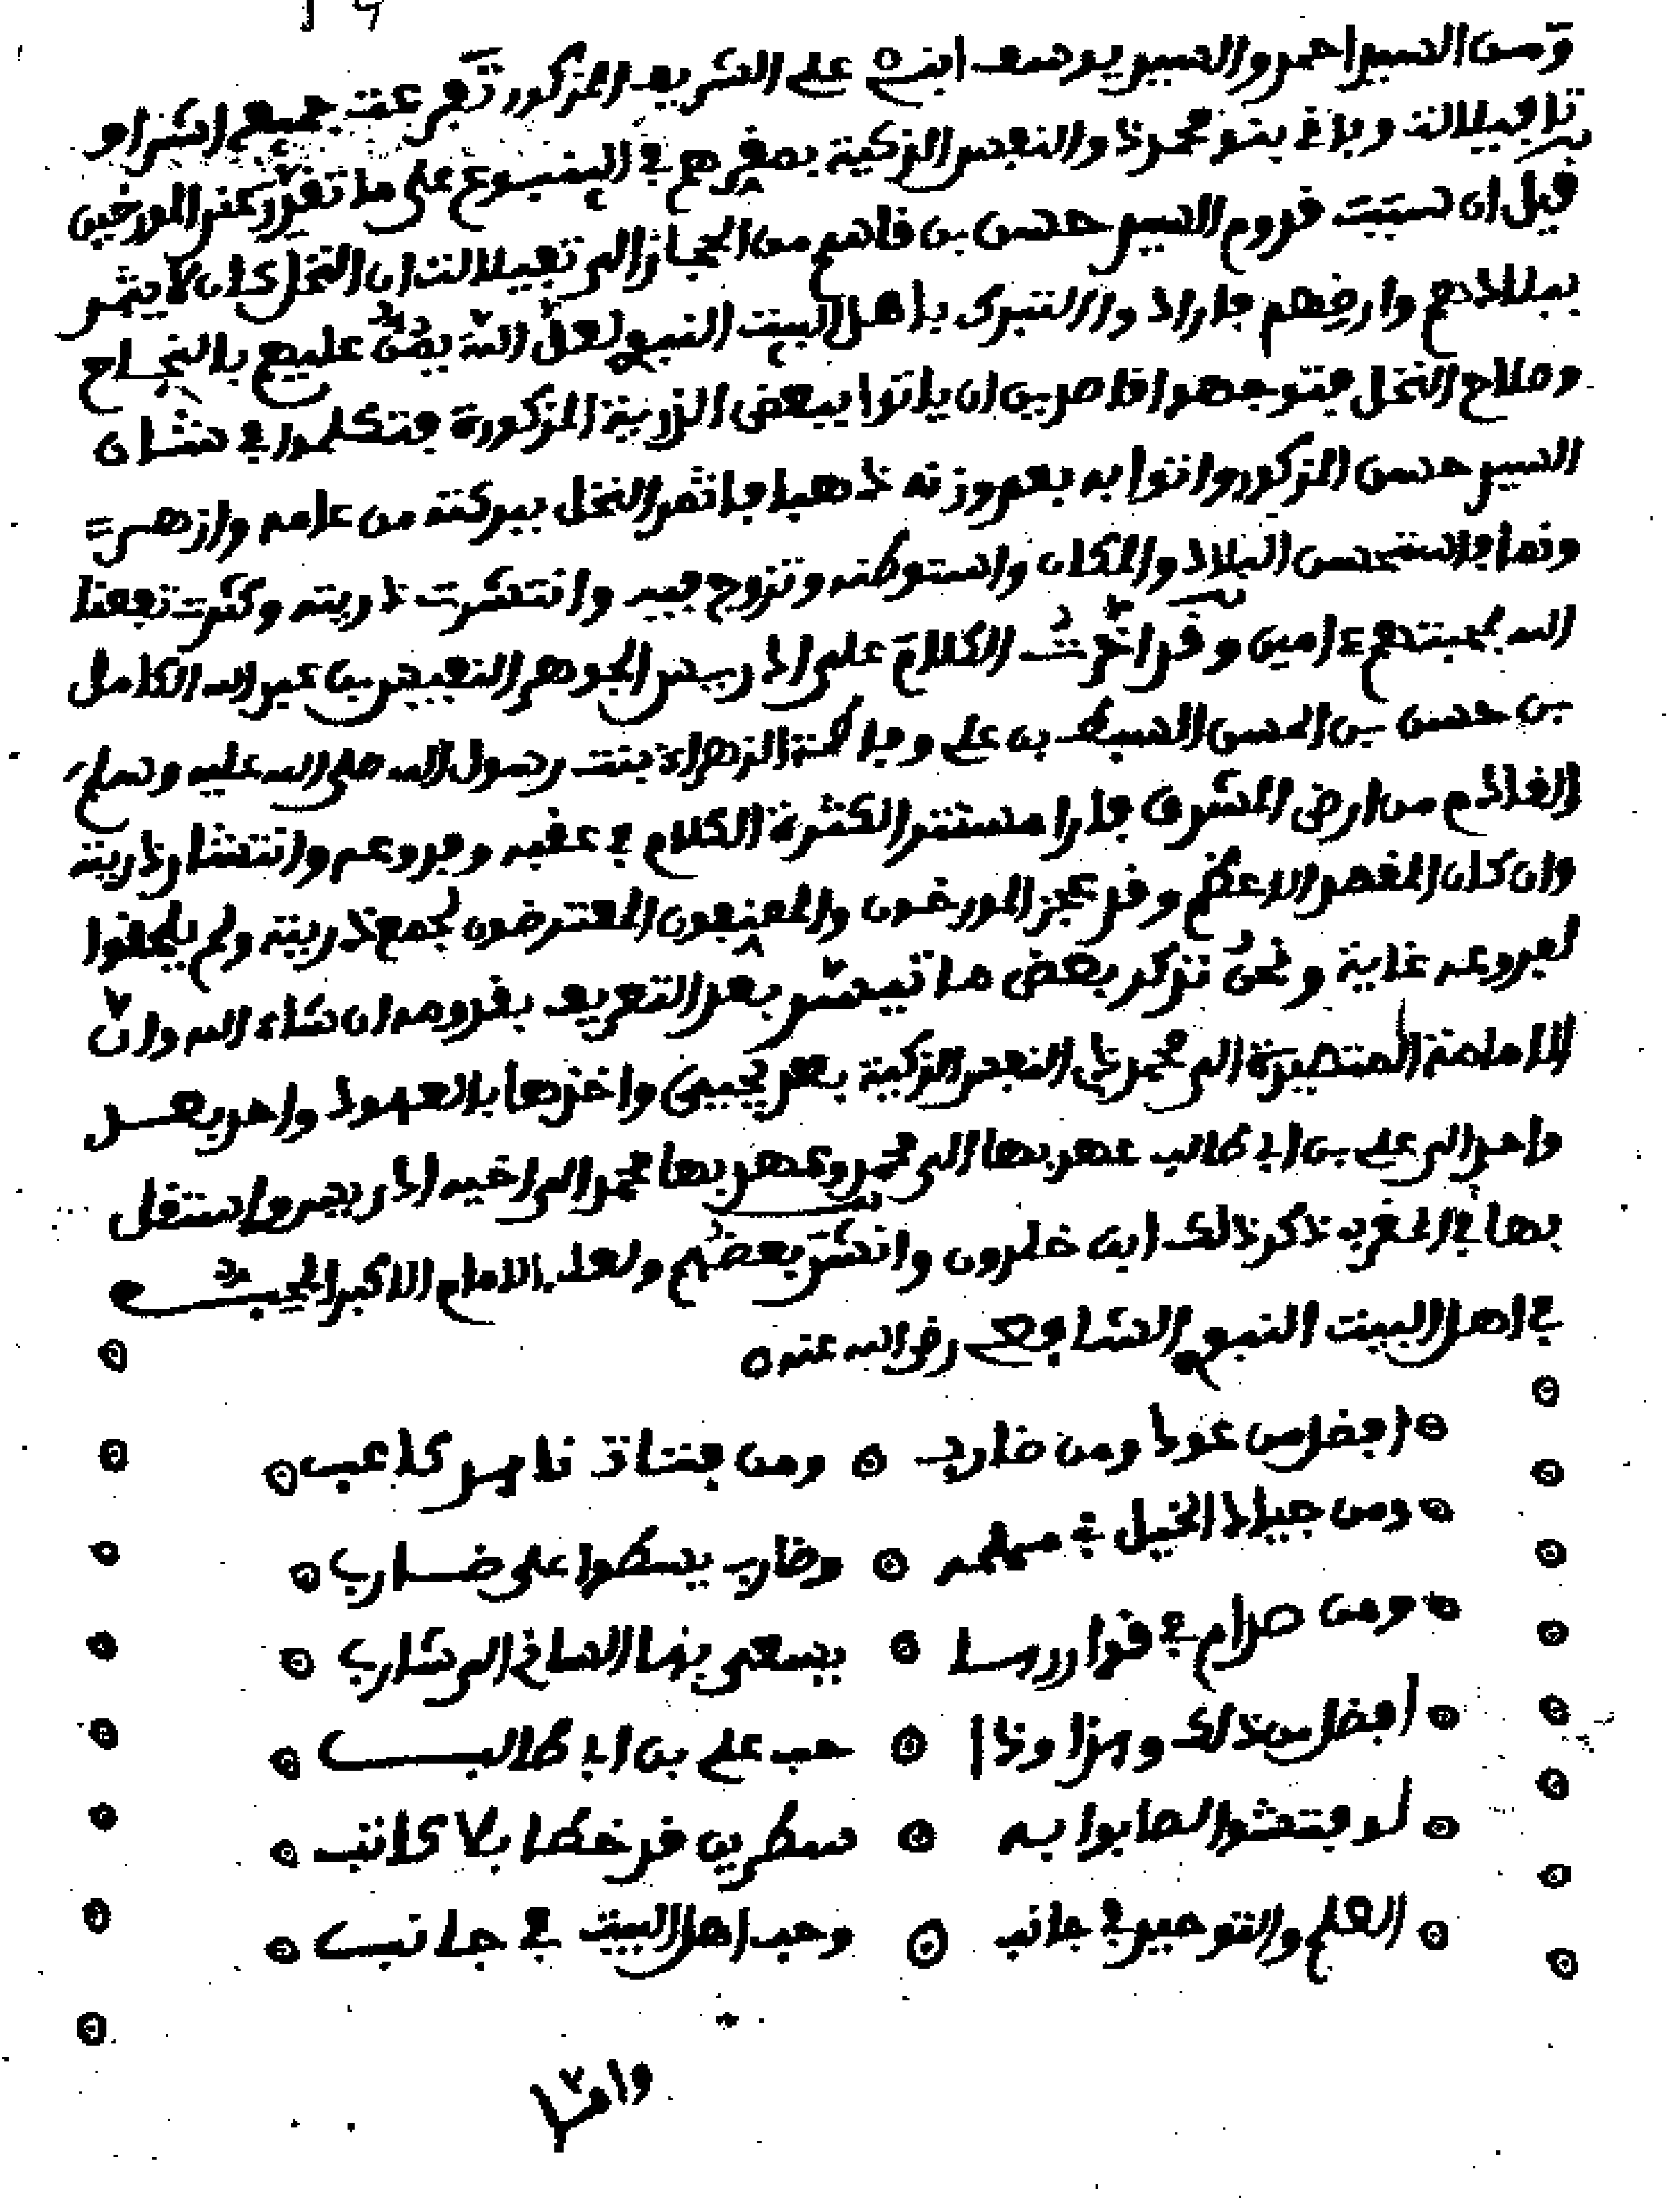 ومن السيد احمد والسيد يوسف ابني علي الشريف المذكور تفرعت جميع اشراف
تافيلالت وباقي بنو محمد والنفس الزكية بمقرهم في الينبوع على ما تقرر عند المورخين
قيل ان سبب قدوم السيد حسن بن قاسم من الحجاز الى تفيلالت ان النخل كان لا يثمر
ببلادهم وارضهم فارادوا التبرك باهل البيت النبوي لعل الله يمن عليهم بالنجاح
وصلاح النخل فتوجهوا قاصدين ان ياتوا ببعض الذرية المذكورة فتكلموا في شان
السيد حسن المذكور واتوا به بعد وزنه ذهبا فاثمر النخل ببركته من عامه وازهى
ونما فاستحسن البلاد والمكان واستوطنه وتزوج فيه وانتشرت ذريته وكثرت نفعنا
الله بمحبتهم ءامين وقد اخرت الكلام على ادريس الجوهر النفيس بن عبد الله الكامل
بن حسن بن الحسن السبط بن علي وفاطمة الزهراء بنت رسول الله صلى الله عليه وسلم
القادم من ارض المشرق فارا مستترا لكثرة الكلام في عقبه وفروعه وانتشار ذريته
وان كان المقصد الاعظم وقد عجز المورخون والمعتنون المعترضون لجمع ذريته ولم يلحقوا
لفروعه غاية ونحن نذكر بعض ما تيسر بعد التعريف بقدومه ان شاء الله وان
الامامة المتصيرة الى محمد ذي النفس الزكية بعد يحيى واخذها بالعهود واحد بعد
واحد الى علي بن ابي طالب عهد بها الى محمد وعهد بها محمد الى اخيه ادريس واستقل
بها في المغرب ذكر ذلك ابن خلدون وانشد بعضهم ولعله الامام الاكبر المحب
في اهل البيت النبوي الشافعي رضي الله عنه
افضل من عود ومن ضارب ومن فتاة ناهد كاعب
ومن جياد الخيل في مهمه وضارب يسطوا على ضارب
ومن مدام في قواريرها يسعى بها الساقي الى شارب
افضل من ذلك وهذا وذا حب علي بن ابي طالب
لو فتشوا لصابوا به سطرين قد خطا بلا كاتب
العلم والتوحيد في جانب وحب اهل البيت في جانب
واما